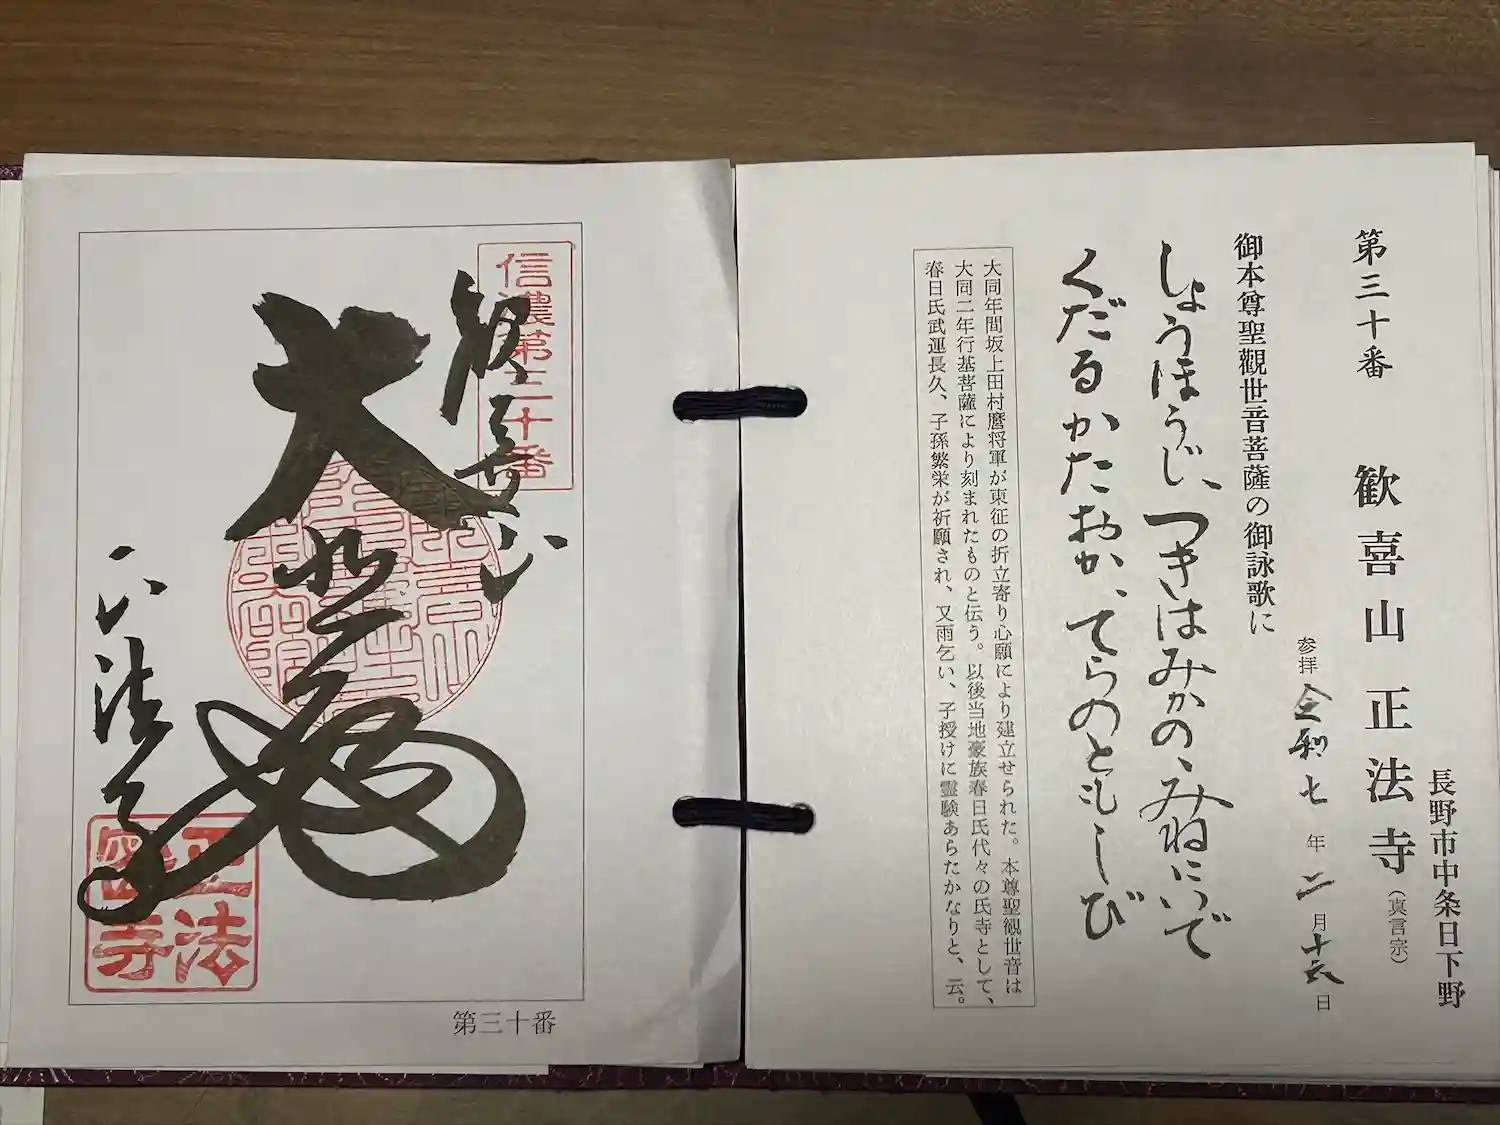 長野市中条日下野
第三十番 歓喜山 正法寺（真言宗）
参拝 令和七年二月十六日
御本尊聖観世音菩薩の御詠歌に
しょうほうじ、つきはみかの、みねにいで
くだるかたおか、てらのともしび
大同年間坂上田村麿将軍が東征の折立寄り心願により建立せられた。本尊聖観世音は
大同二年行基菩薩により刻まれたものと伝う。以後当地豪族春日氏代々の氏寺として、
春日氏武運長久、子孫繁栄が祈願され、又雨乞い、子授けに霊験あらたかなりと、云。
信濃第三十番
歓喜山
大悲殿
正法寺
正法
寺
第三十番